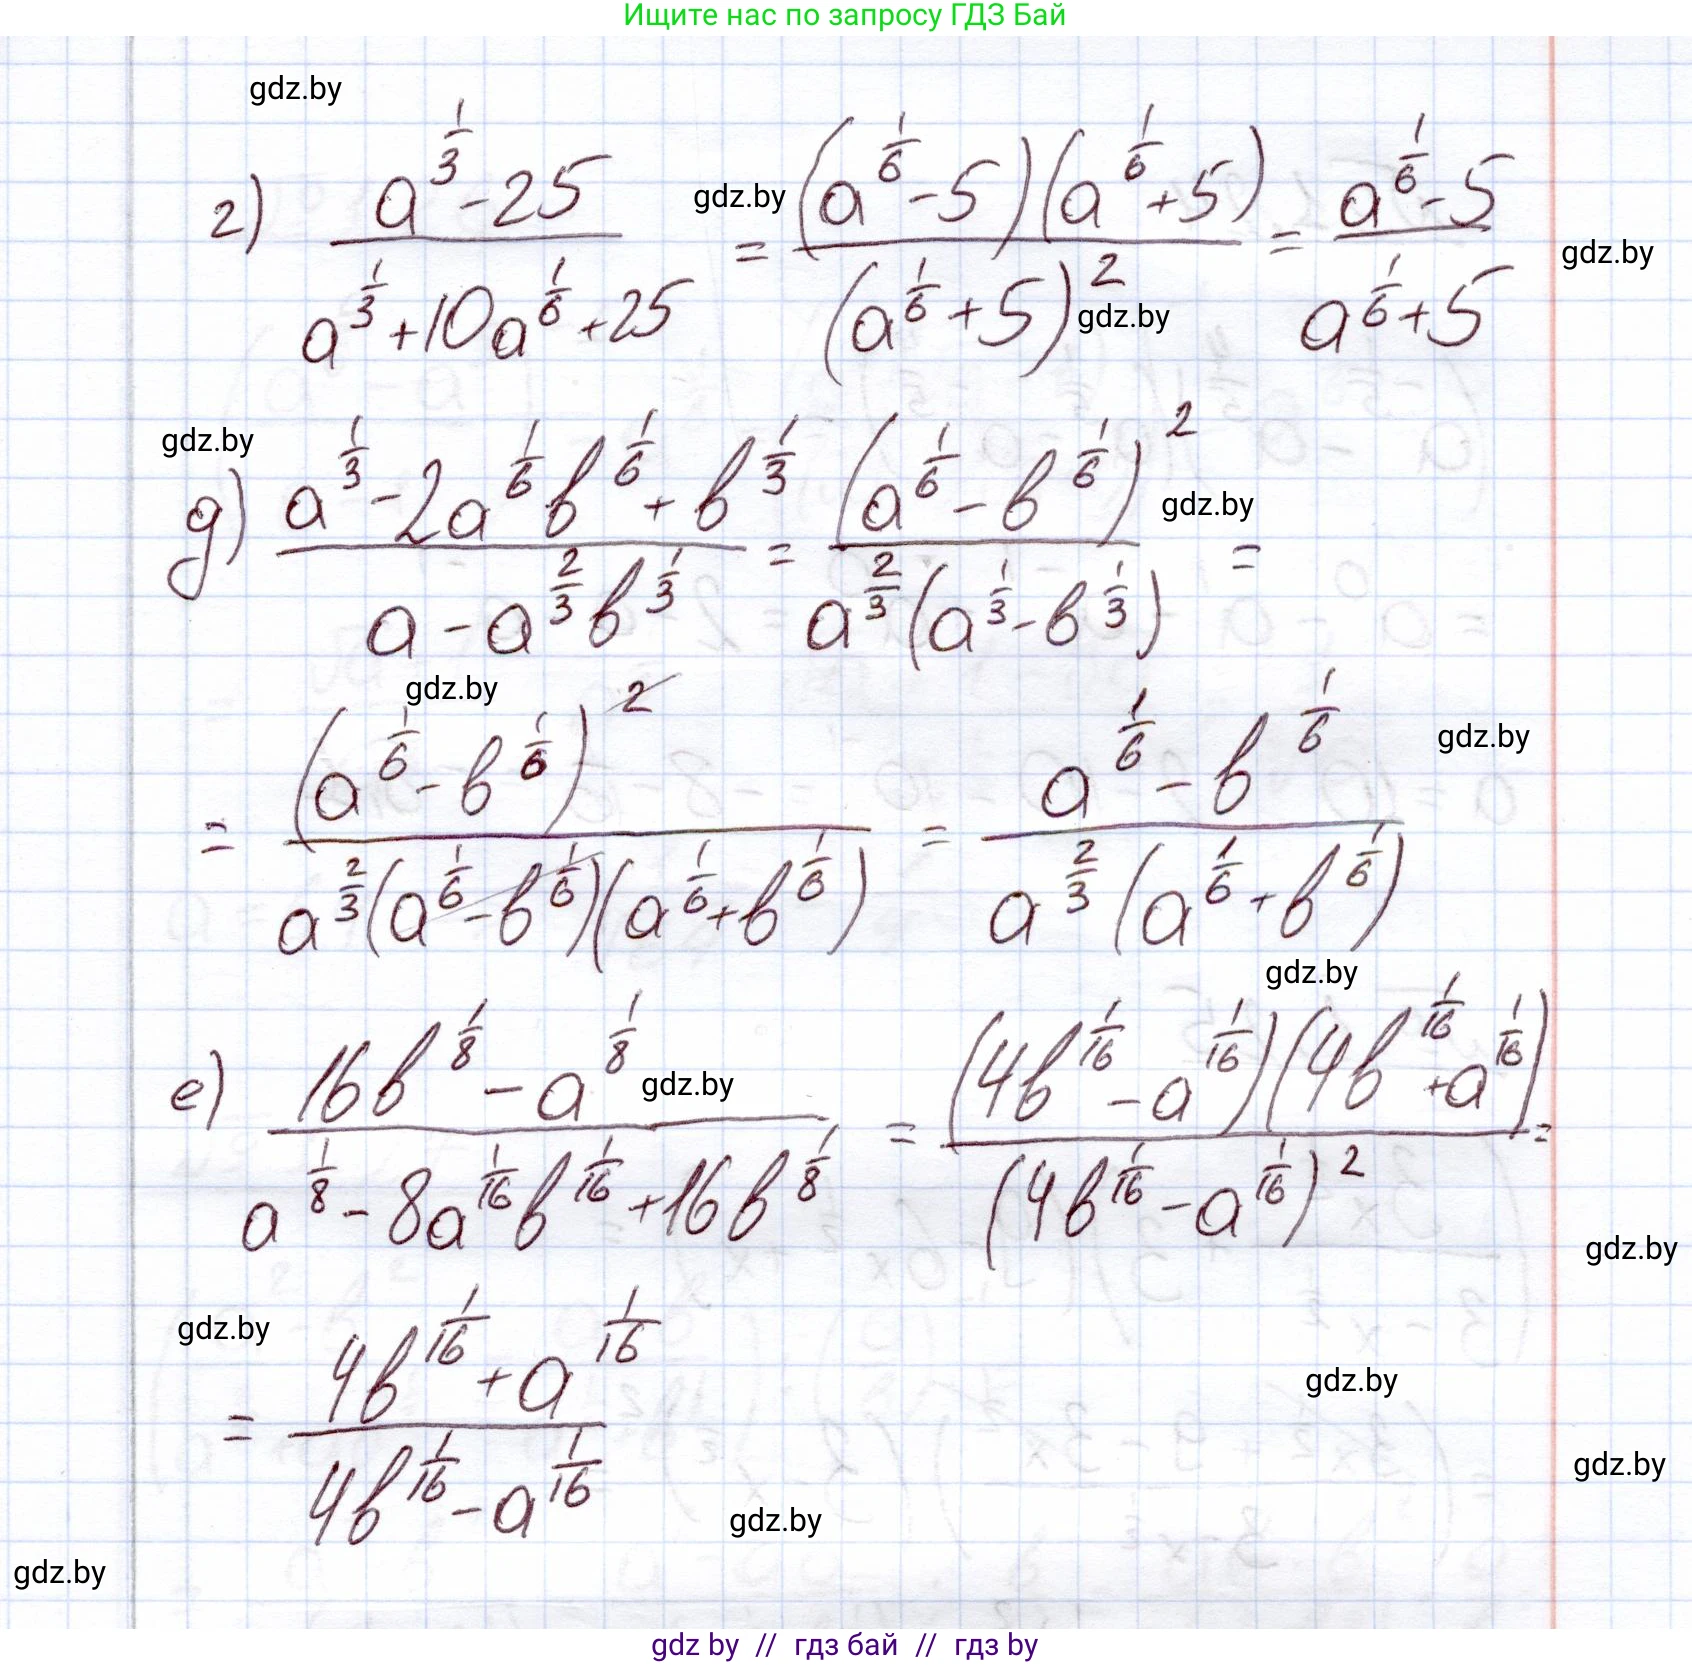 Ищите нас по запросу ГДЗ Бай
gdz.by
г) (a^(1/3) - 25)/(a^(1/3) + 10a^(1/6) + 25) = ((a^(1/6) - 5)(a^(1/6) + 5))/((a^(1/6) + 5)^2) = (a^(1/6) - 5)/(a^(1/6) + 5)
gdz.by
gdz.by
gdz.by
gdz.by
д) (a^(1/3) - 2a^(1/6)в^(1/6) + в^(1/3))/(a - a^(2/3)в^(1/3)) = ((a^(1/6) - в^(1/6))^2)/(a^(2/3)(a^(1/3) - в^(1/3))) =
gdz.by
gdz.by
= ((a^(1/6) - в^(1/6))^2)/(a^(2/3)(a^(1/6) - в^(1/6))(a^(1/6) + в^(1/6))) = (a^(1/6) - в^(1/6))/(a^(2/3)(a^(1/6) + в^(1/6)))
gdz.by
gdz.by
е) (16в^(1/8) - a^(1/8))/(a^(1/8) - 8a^(1/16)в^(1/16) + 16в^(1/8)) = ((4в^(1/16) - a^(1/16))(4в^(1/16) + a^(1/16)))/((4в^(1/16) - a^(1/16))^2) =
gdz.by
gdz.by
gdz.by
= (4в^(1/16) + a^(1/16))/(4в^(1/16) - a^(1/16))
gdz.by
gdz.by
gdz.by
gdz.by
gdz by // гдз бай // гдз by